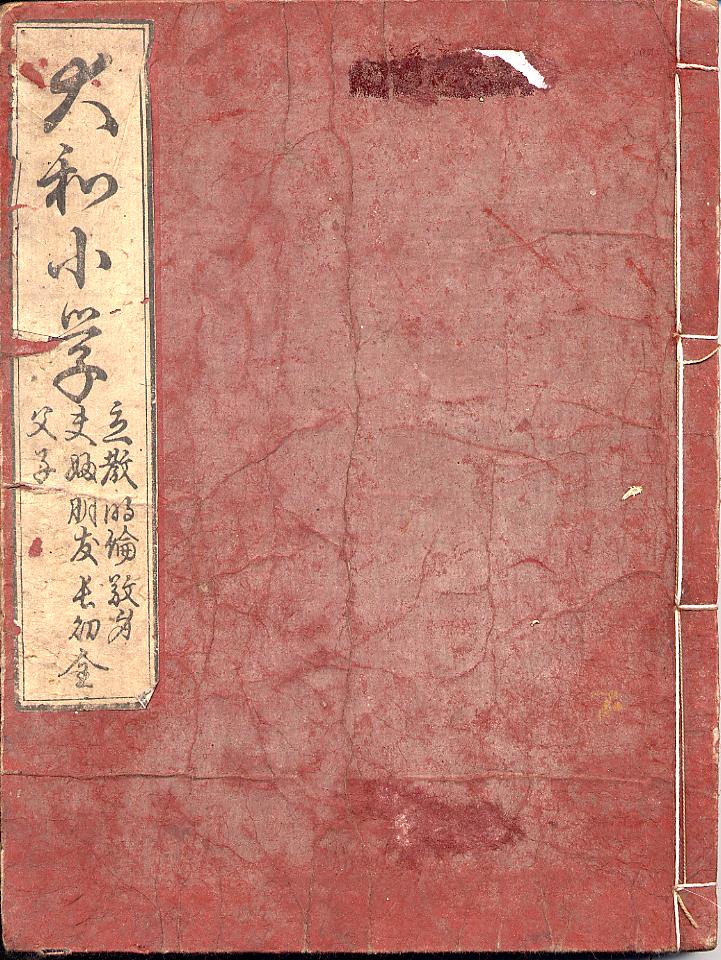 大和小学
立教明倫敬身
夫婦朋友長幼全
父子